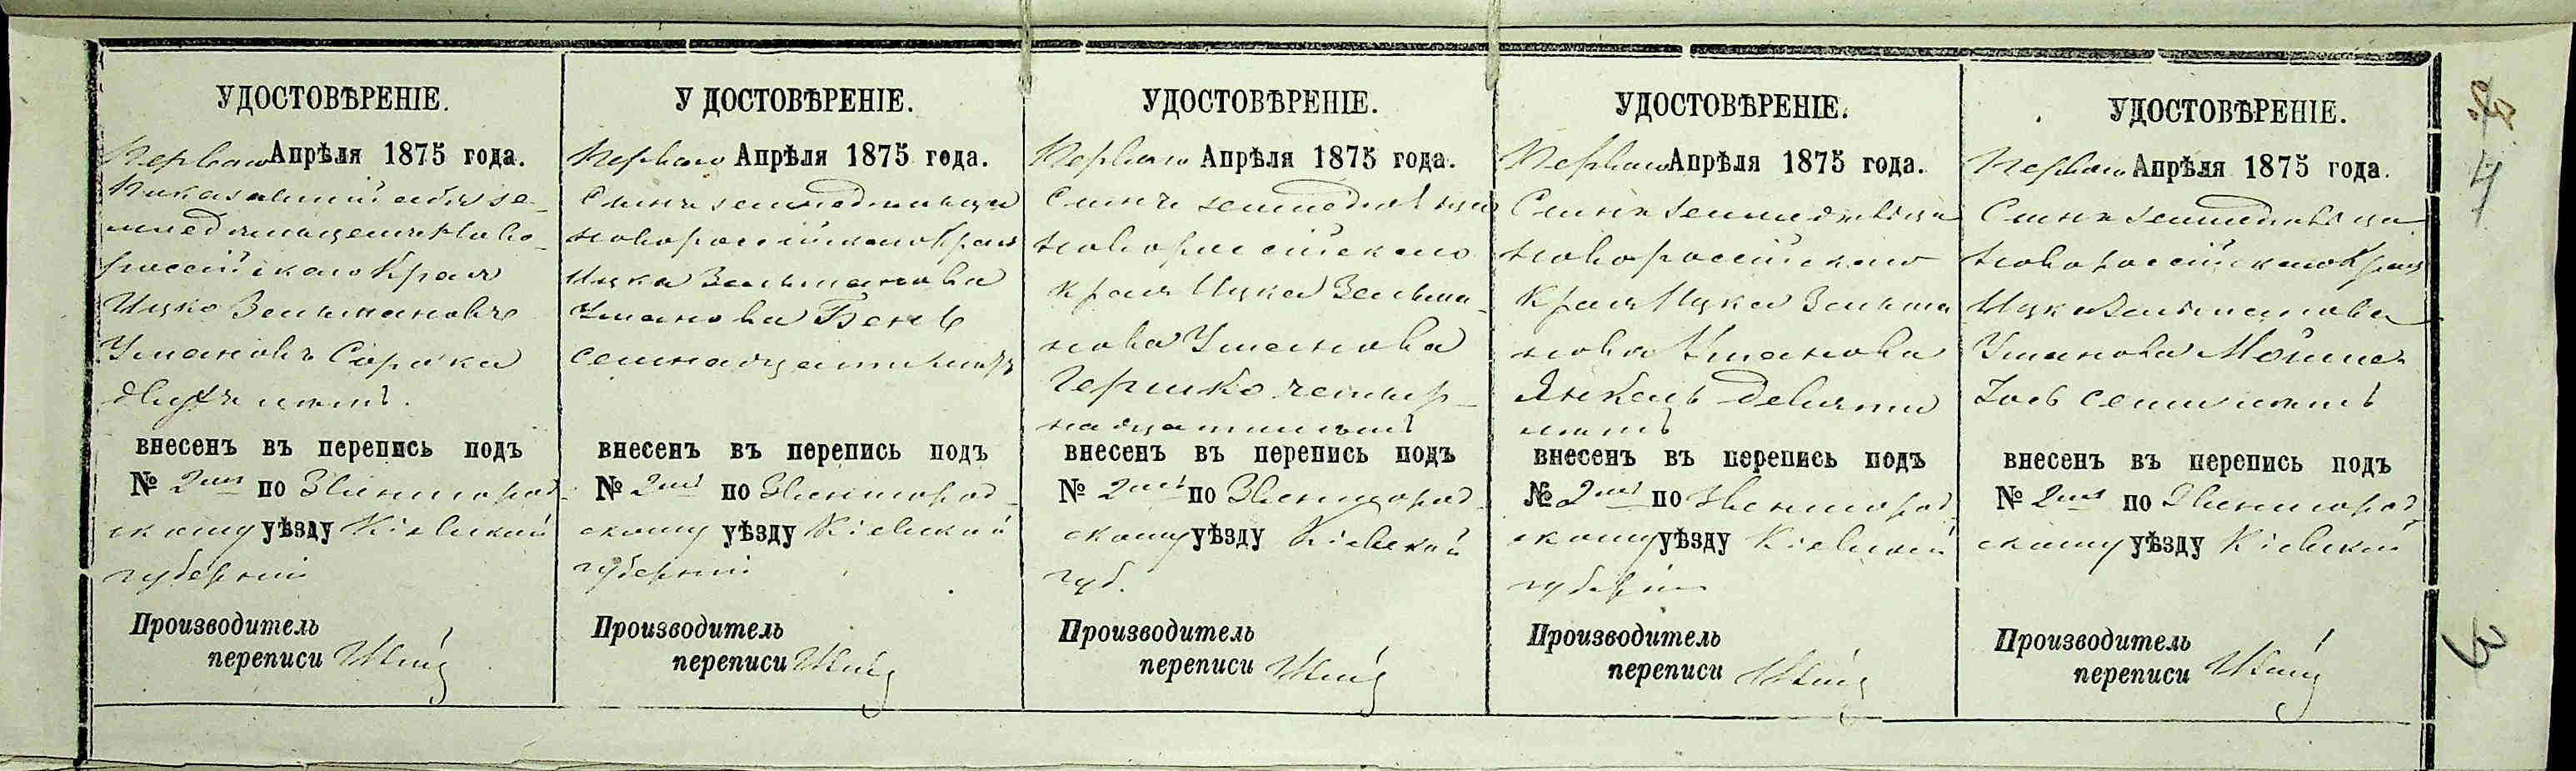 УДОСТОВѢРЕНІЕ.
Перваго Апрѣля 1875 года.
Показавшій себя зе-
мледѣльцемъ Ново-
россійскаго Края
Ицко Зельмановъ
Умановъ Сорока
двухъ лѣтъ.
внесенъ въ перепись подъ
№ 2мъ по Звенигород-
скому уѣзду Кіевской
губерніи
Производитель
переписи
УДОСТОВѢРЕНІЕ.
Перваго Апрѣля 1875 года.
Сынъ земледѣльца
Новороссійскаго Края
Ицка Зельманова
Уманова Бень
семнадцати лѣтъ
внесенъ въ перепись подъ
№ 2мъ по Звенигород-
скому уѣзду Кіевской
губерніи
Производитель
переписи
УДОСТОВѢРЕНІЕ.
Перваго Апрѣля 1875 года.
Сынъ земледѣльца
Новороссійскаго
Края Ицка Зельма-
нова Уманова
Гершко четыр-
надцати лѣтъ
внесенъ въ перепись подъ
№ 2мъ по Звенигород-
скому уѣзду Кіевской
губ.
Производитель
переписи
УДОСТОВѢРЕНІЕ.
Перваго Апрѣля 1875 года.
Сынъ земледѣльца
Новороссійскаго
Края Ицка Зельма
нова Уманова
Янкель девяти
лѣтъ
внесенъ въ перепись подъ
№ 2мъ по Звенигород-
скому уѣзду Кіевской
губерніи
Производитель
переписи
УДОСТОВѢРЕНІЕ.
Перваго Апрѣля 1875 года.
Сынъ земледѣльца
Новороссійскаго Края
Ицка Зельманова
Уманова Мошко
семи лѣтъ
внесенъ въ перепись подъ
№ 2мъ по Звенигород-
скому уѣзду Кіевской
Производитель
переписи
4